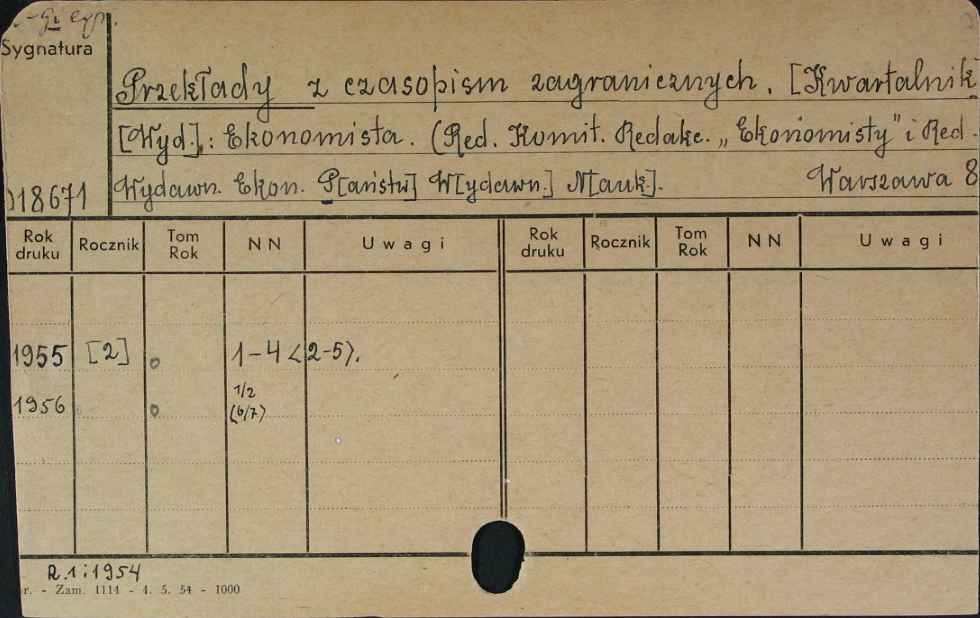 -gi egz.
Sygnatura
Przekłady z czasopism zagranicznych. [Kwartalnik]
[Wyd.]: Ekonomista. (Red. Komit. Redakc. „Ekonomisty” i Red.
018671 Wydawn. Ekon. P[aństw] W[ydawn.] N[auk]. Warszawa 8
Rok druku Rocznik Tom Rok NN Uwagi Rok druku Rocznik Tom Rok NN Uwagi
1955 [2] 1-4 <2-5>.
1/2
1956 (6/7)
R.1:1954
r. - Zam. 1114 - 4. 5. 54 - 1000